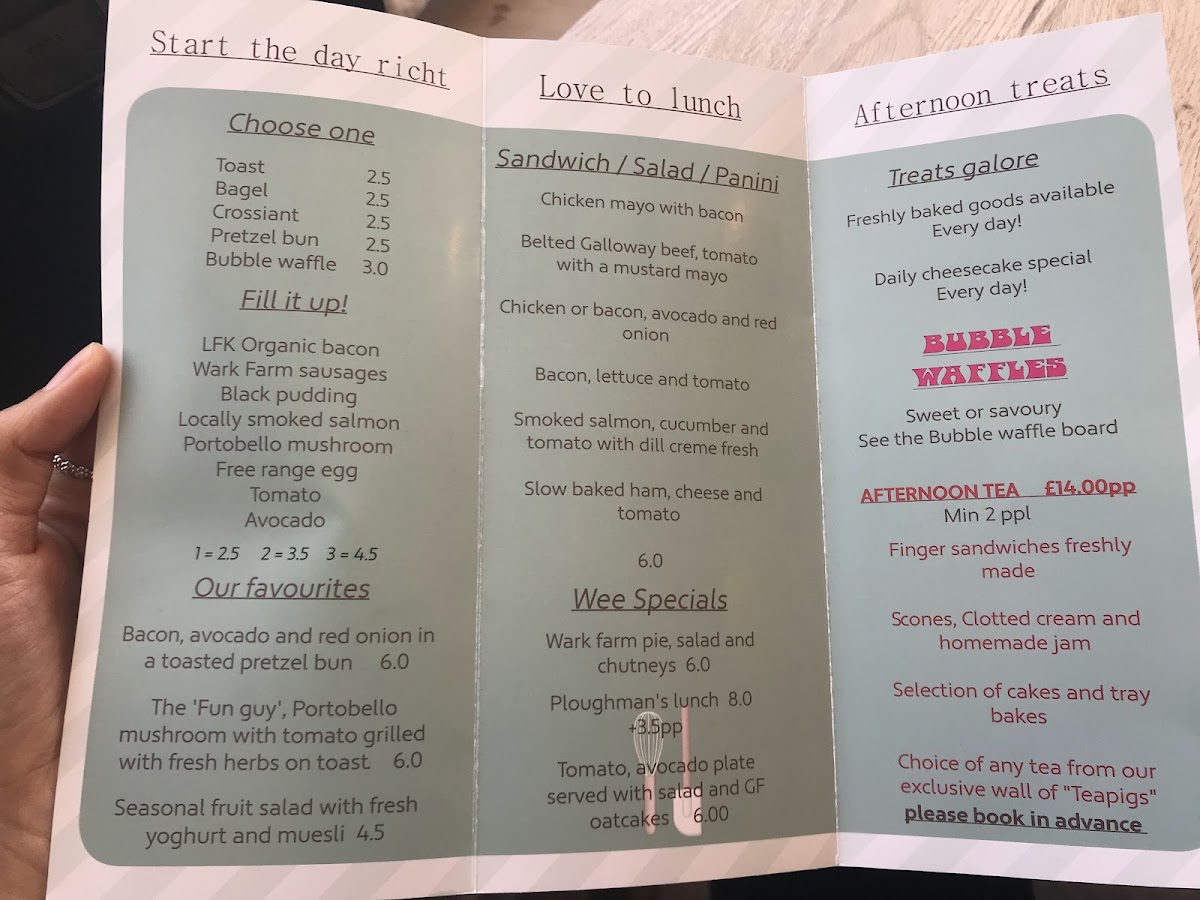 Start the day richt
Choose one
Toast 2.5
Bagel 2.5
Crossiant 2.5
Pretzel bun 2.5
Bubble waffle 3.0
Fill it up!
LFK Organic bacon
Wark Farm sausages
Black pudding
Locally smoked salmon
Portobello mushroom
Free range egg
Tomato
Avocado
1 = 2.5 2 = 3.5 3 = 4.5
Our favourites
Bacon, avocado and red onion in
a toasted pretzel bun 6.0
The 'Fun guy', Portobello
mushroom with tomato grilled
with fresh herbs on toast 6.0
Seasonal fruit salad with fresh
yoghurt and muesli 4.5
Love to lunch
Sandwich / Salad / Panini
Chicken mayo with bacon
Belted Galloway beef, tomato
with a mustard mayo
Chicken or bacon, avocado and red
onion
Bacon, lettuce and tomato
Smoked salmon, cucumber and
tomato with dill creme fresh
Slow baked ham, cheese and
tomato
6.0
Wee Specials
Wark farm pie, salad and
chutneys 6.0
Ploughman's lunch 8.0
+3.5pp
Tomato, avocado plate
served with salad and GF
oatcakes 6.00
Afternoon treats
Treats galore
Freshly baked goods available
Every day!
Daily cheesecake special
Every day!
BUBBLE
WAFFLES
Sweet or savoury
See the Bubble waffle board
AFTERNOON TEA £14.00pp
Min 2 ppl
Finger sandwiches freshly
made
Scones, Clotted cream and
homemade jam
Selection of cakes and tray
bakes
Choice of any tea from our
exclusive wall of "Teapigs"
please book in advance